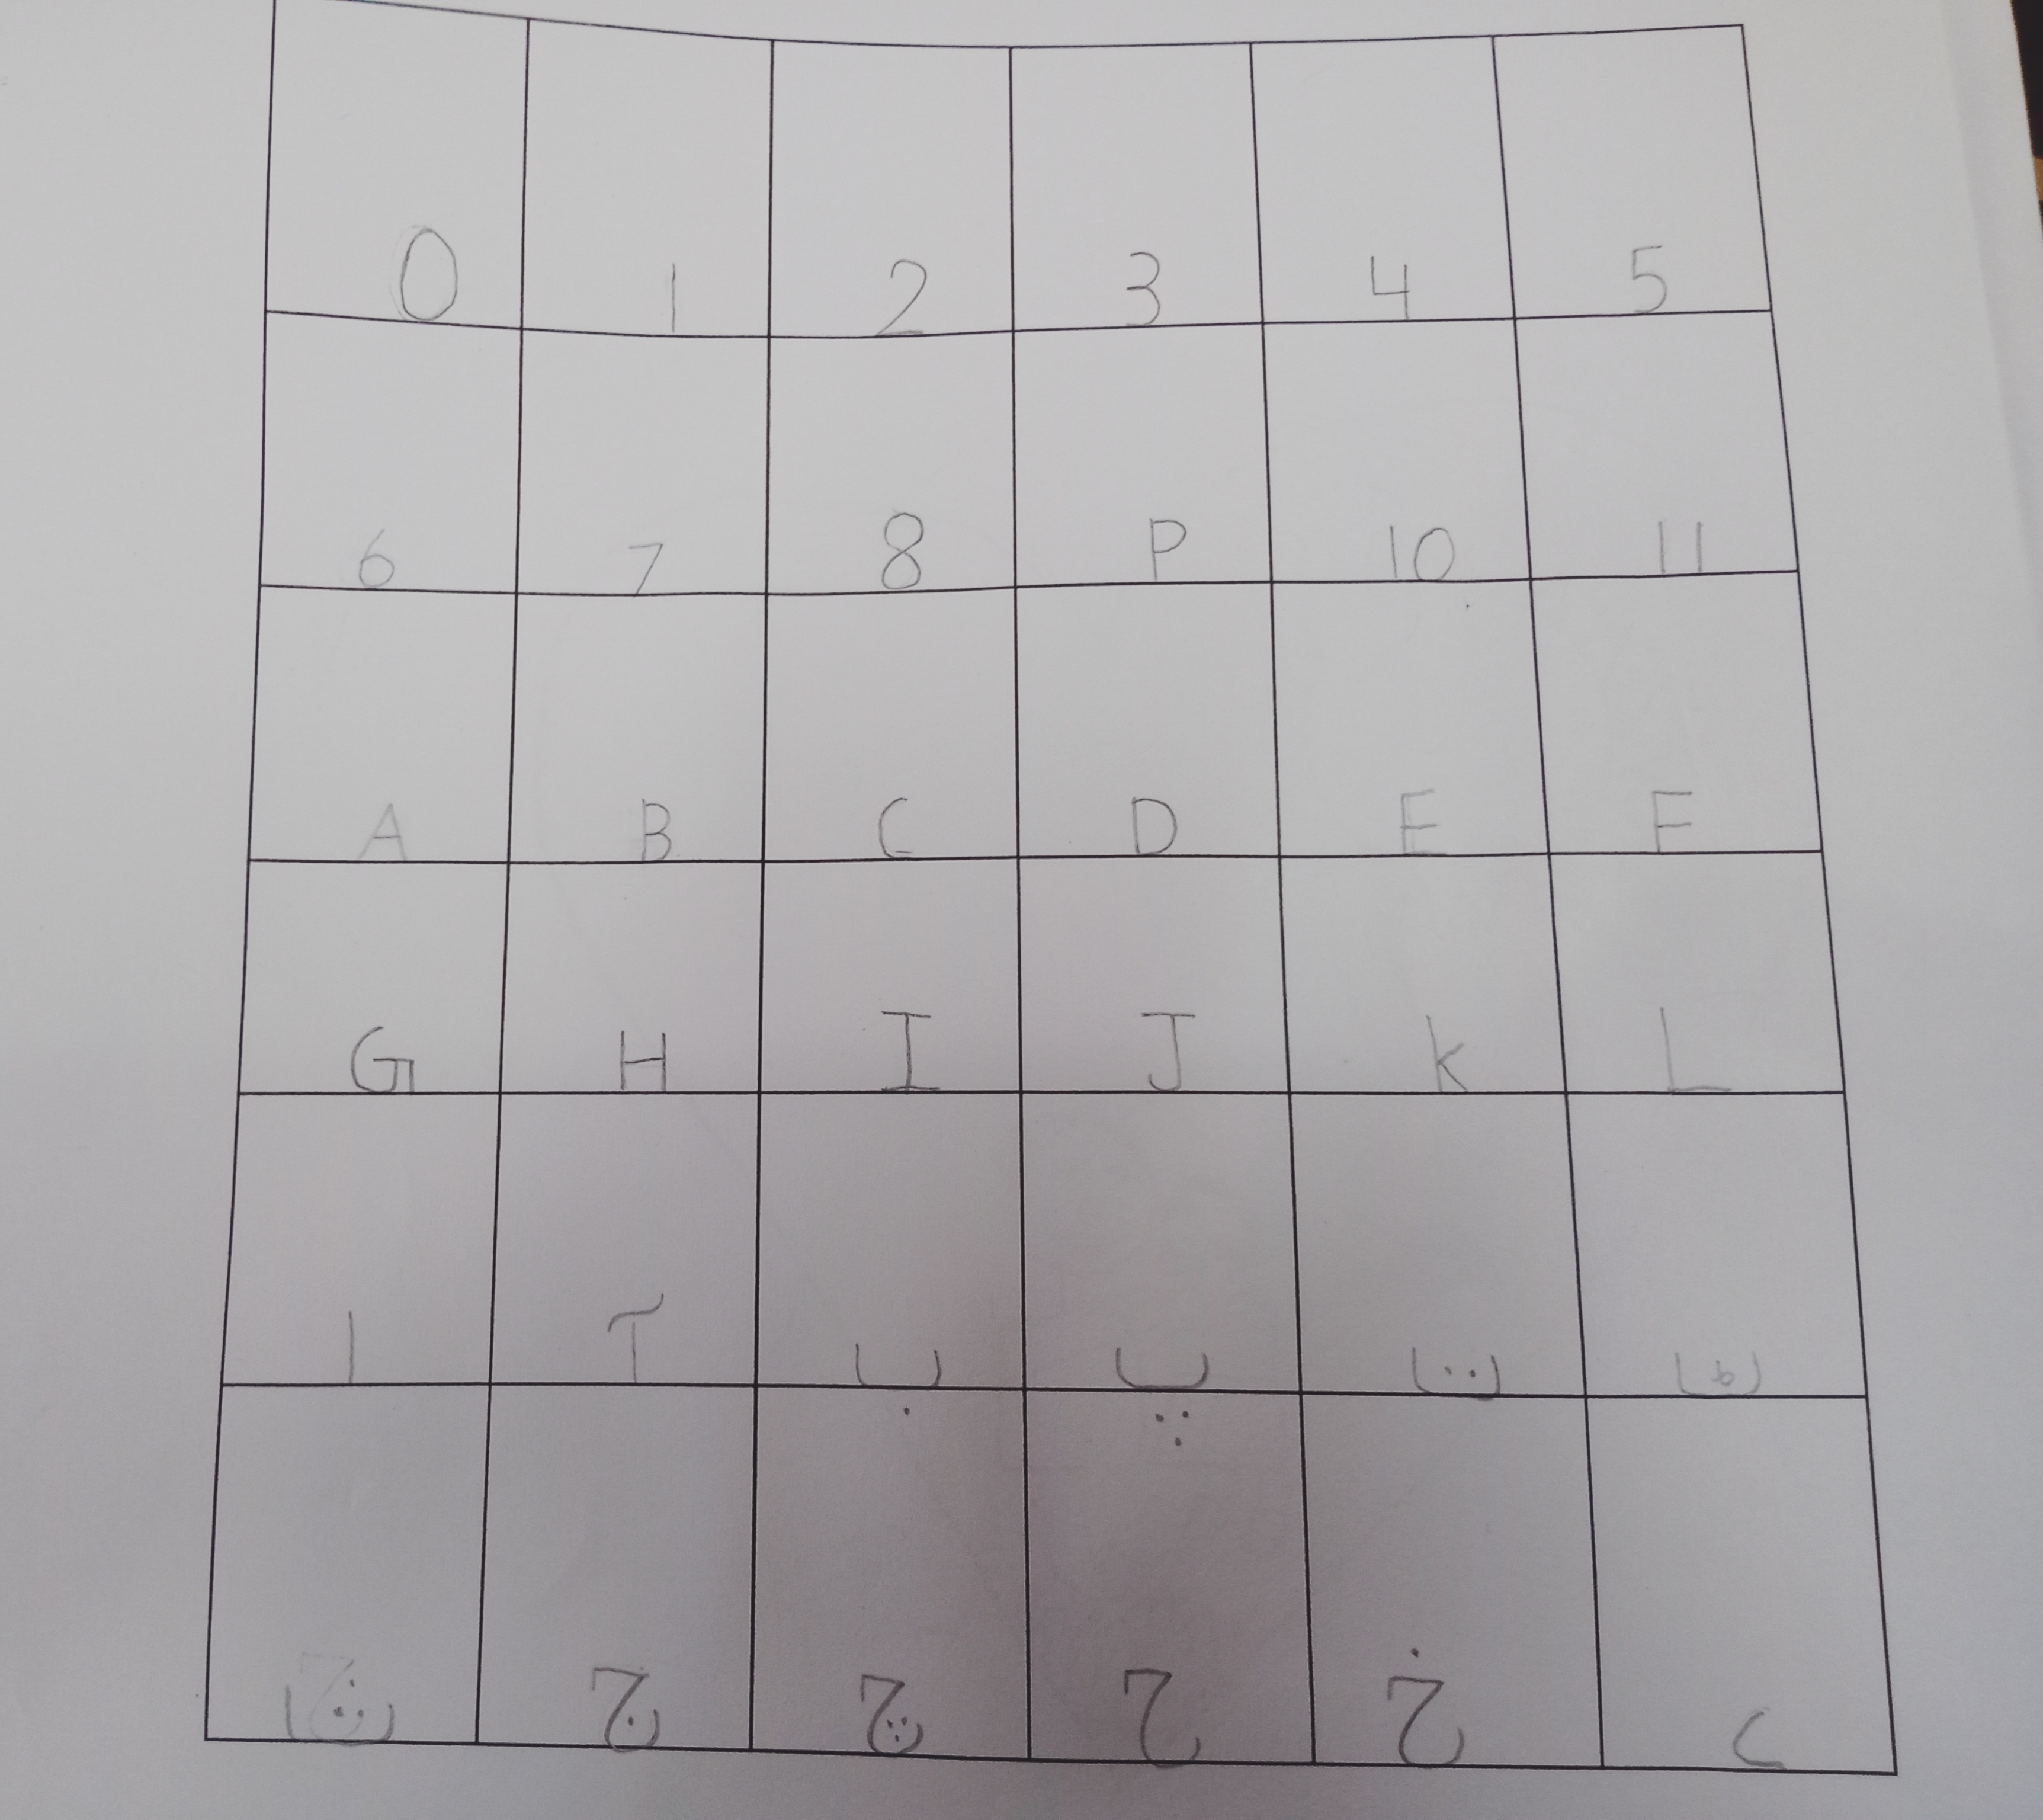 0 1 2 3 4 5
6 7 8 P 10 11
A B C D E F
G H I J K L
ا آ ب پ ت ٹ
ث ج چ ح خ د